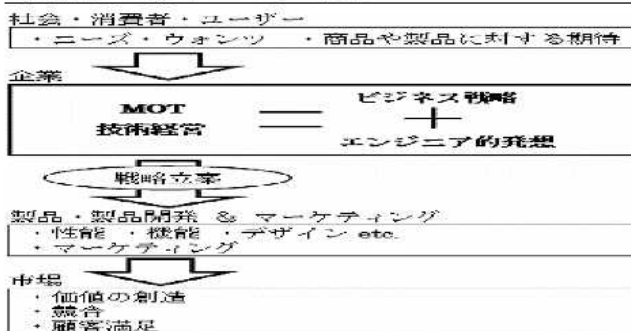 社会・消費者・ユーザー
・ニーズ・ウォンツ ・商品や製品に対する期待
企業
MOT
技術経営
=
ビジネス戦略
+
エンジニア的発想
戦略立案
製品・製品開発 & マーケティング
・性能 ・機能 ・デザイン etc.
・マーケティング
市場
・価値の創造
・競合
・顧客満足